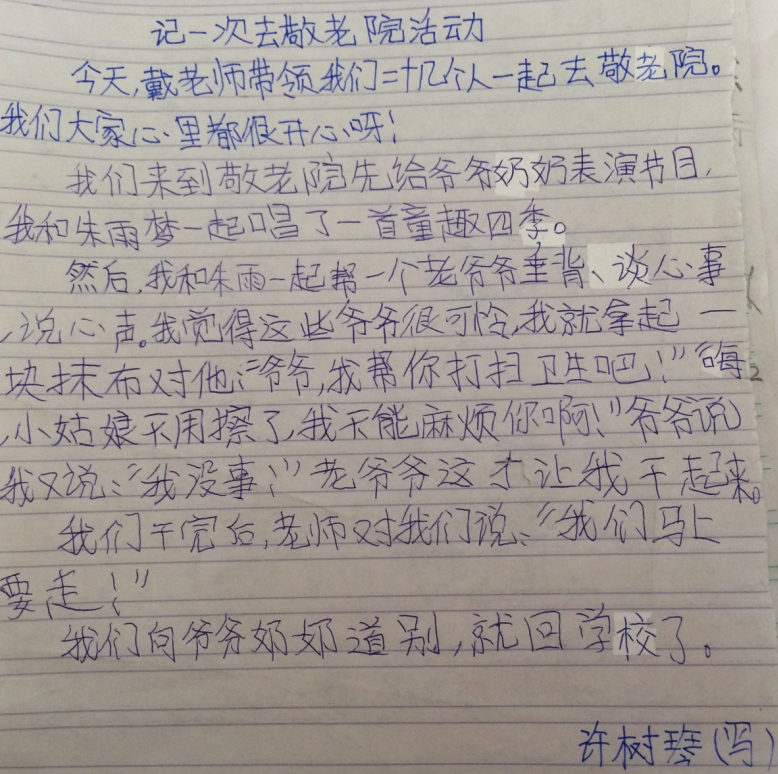 记一次去敬老院活动
今天,戴老师带领我们二十几个人一起去敬老院。
我们大家心里都很开心呀!
我们来到敬老院先给爷爷奶奶表演节目,
我和朱雨梦一起唱了一首童趣四季。
然后,我和朱雨一起帮一个老爷爷垂背、谈心事
,说心声。我觉得这些爷爷很可怜,我就拿起一
块抹布对他:“爷爷,我帮你打扫卫生吧!”“嗨
,小姑娘不用擦了,我不能麻烦你啊!”爷爷说
我又说:“我没事!”老爷爷这才让我干起来。
我们干完后,老师对我们说:“我们马上
要走!”
我们向爷爷奶奶道别,就回学校了。
许树琴(写)